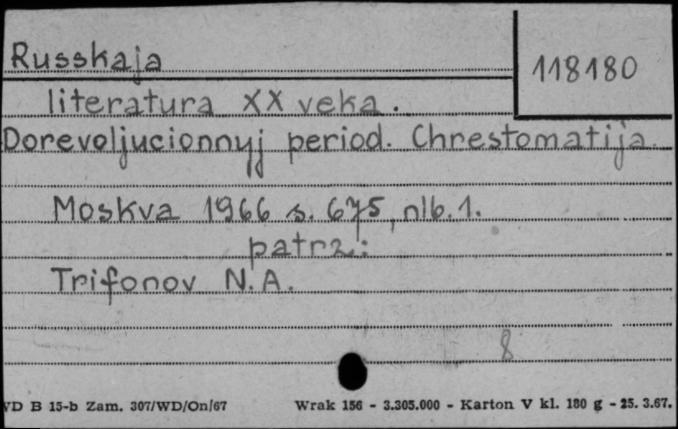 Russkaja
118180
literatura XX veka.
Dorevoljucionnyj period. Chrestomatija.
Moskva 1966 s. 675, nlb. 1.
patrz:
Trifonov N.A.
8
WD B 15-b Zam. 307/WD/On/67 Wrak 156 - 3.305.000 - Karton V kl. 180 g - 25. 3.67.